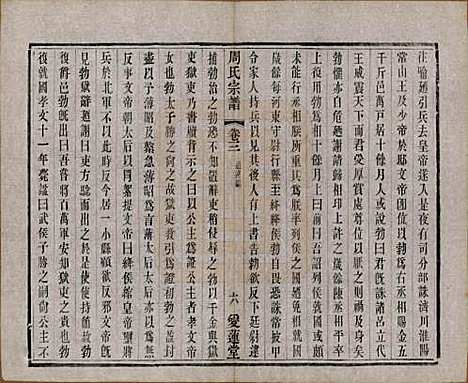 往諭迺引兵去皇帝遂入是夜有司分部誅濟川淮陽
常山王及少帝於邸文帝即位以勃為右丞相賜金五
千斤邑萬戶居十餘月人或說勃曰君既誅諸呂立代
王威震天下而君受厚賞處尊位以厭之則禍及身矣
勃懼亦自危迺謝請歸相印上許之歲餘陳丞相平卒
上復用勃為丞相十餘月上曰前日吾詔列侯就國或
未能行丞相朕所重其為朕率列侯之國迺免相就國
歲餘每河東守尉行縣至絳絳侯勃自畏恐誅常被甲
令家人持兵以見其後人有上書告勃欲反下廷尉逮
周氏宗譜 卷三 六 愛蓮堂
捕勃治之勃恐不知置辭吏稍侵辱之勃以千金與獄
吏獄吏迺書牘背示之曰以公主為證公主者孝文帝
女也勃太子勝之尚之故獄吏教引為證初勃之益封
盡以予薄昭及繫急薄昭為言薄太后太后亦以為無
反事文帝朝太后以冒絮提文帝曰絳侯綰皇帝璽將
兵於北軍不以此時反今居一小縣顧欲反耶文帝既
見勃獄辭迺謝曰吏方驗而出之於是使使持節赦勃
復爵邑勃既出曰吾嘗將百萬軍安知獄吏之貴也勃
復就國孝文十一年薨諡曰武侯子勝之嗣尚公主不